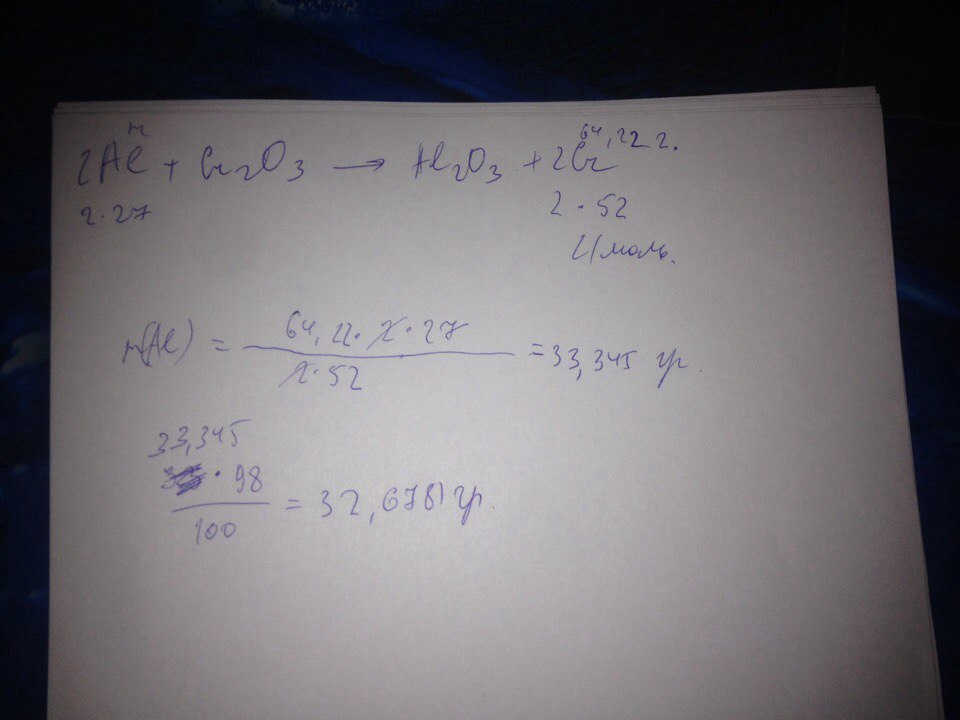 m 64,22 г.
2Al + Cr₂O₃ → Al₂O₃ + 2Cr
2·27 2·52
г/моль.
m(Al) = 64,22·2·27 / 2·52 = 33,345 гр.
33,345
· 98 / 100 = 32,678 гр.